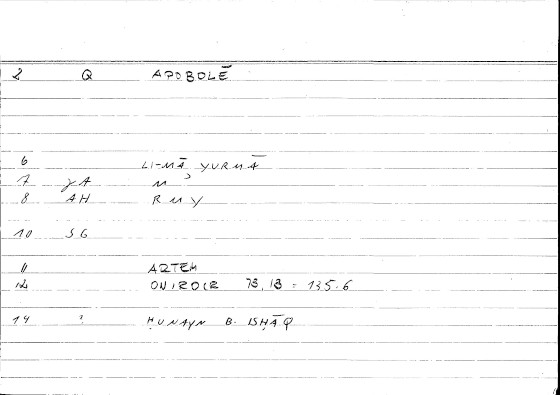 8 Q APOBOLĒ
6 LI-MĀ YURMĀ
7 γA M
8 AH RMY
10 SG
11 ARTEM
12 ONIROCR 73,13 = 135.6
14 ? ḤUNAYN B. ISḤĀQ